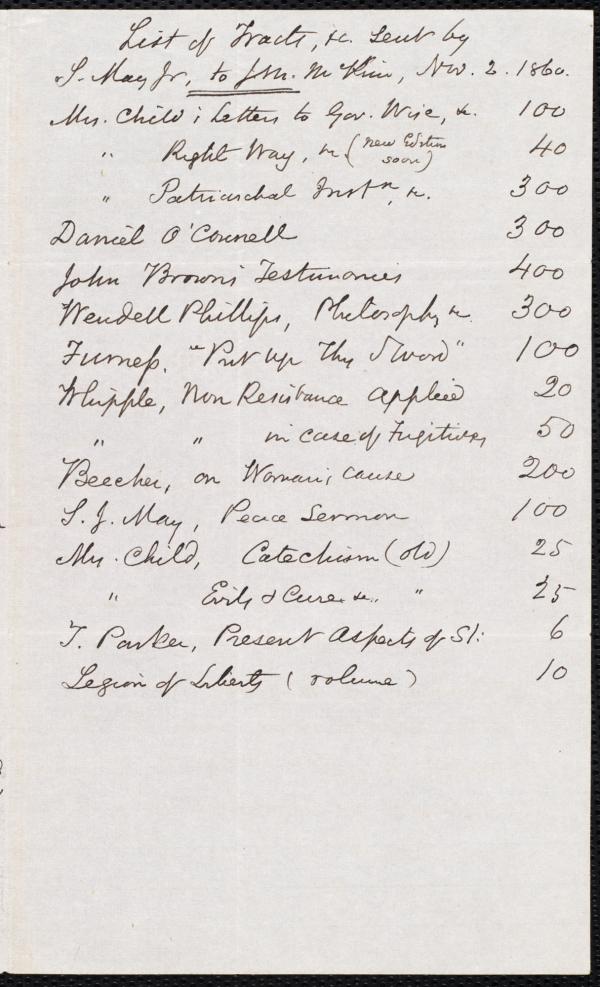 List of Tracts, &c. sent by
S. May Jr., to J.M. McKim, Nov. 2. 1860.
Mrs. Child's Letters to Gov. Wise, &c. 100
" Right Way, &c (New Edition soon) 40
" Patriarchal Instn, &c. 300
Daniel O'Connell 300
John Brown's Testimonies 400
Wendell Phillips, Philosophy &c. 300
Furness, "Put up Thy Sword" 100
Whipple, Non Resistance applied 20
" " in case of Fugitives 50
Beecher, on Woman's cause 200
S. J. May, Peace Sermon 100
Mrs. Child, Catechism (old) 25
" Evils & Cure &c. " 25
T. Parker, Present Aspects of Sl: 6
Legion of Liberty (volume) 10